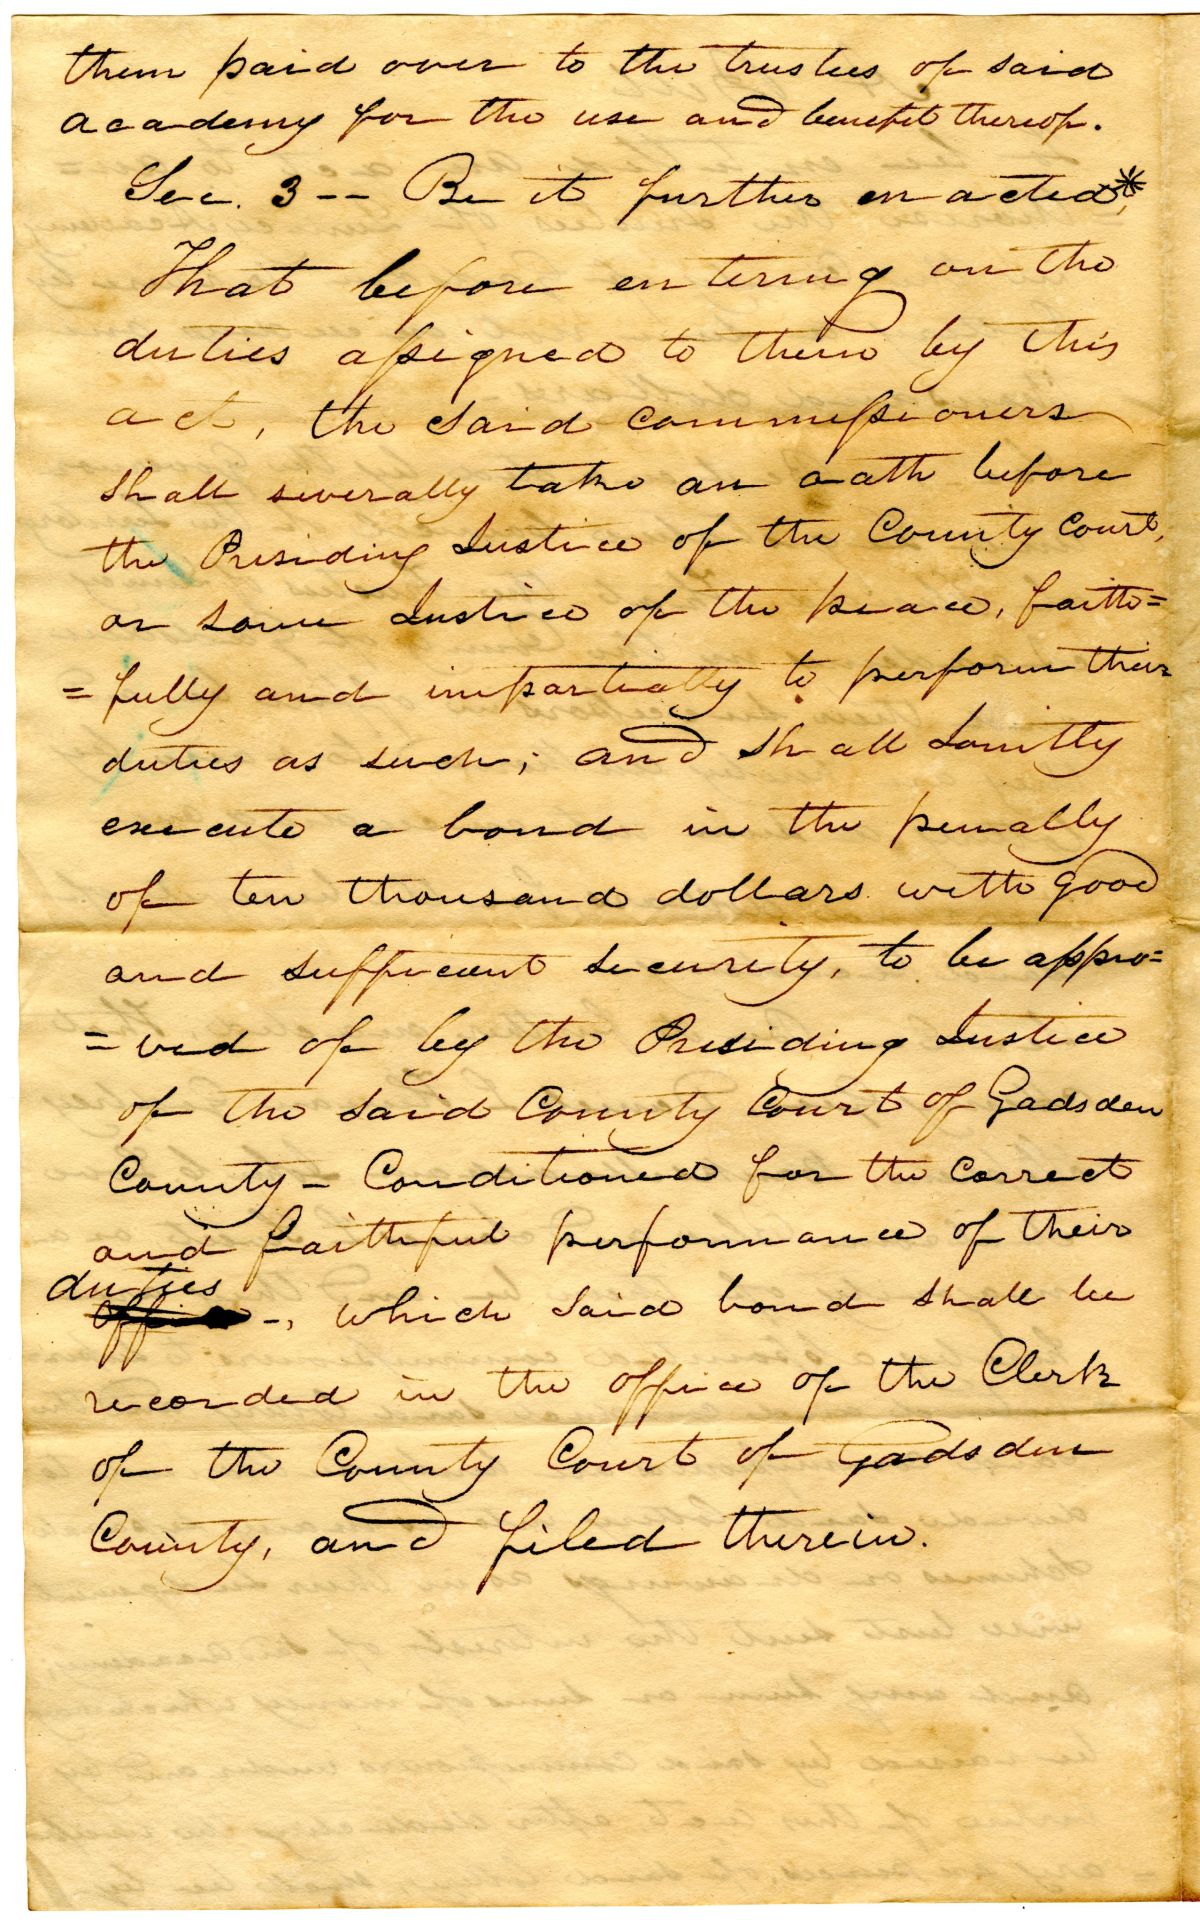 them paid over to the trustees of said
academy for the use and benefit thereof.
Sec. 3 -- Be it further enacted,*
That before entering on the
duties assigned to them by this
act, the said commissioners
shall severally take an oath before
the Presiding Justice of the County Court,
or some Justice of the peace, faith=
=fully and impartially to perform their
duties as such; and shall Jointly
execute a bond in the penalty
of ten thousand dollars with good
and sufficient security, to be appro=
=ved of by the Presiding Justice
of the said County Court of Gadsden
County = Conditioned for the correct
and faithful performance of their
duties
office -, which said bond shall be
recorded in the office of the Clerk
of the County Court of Gadsden
County, and filed therein.